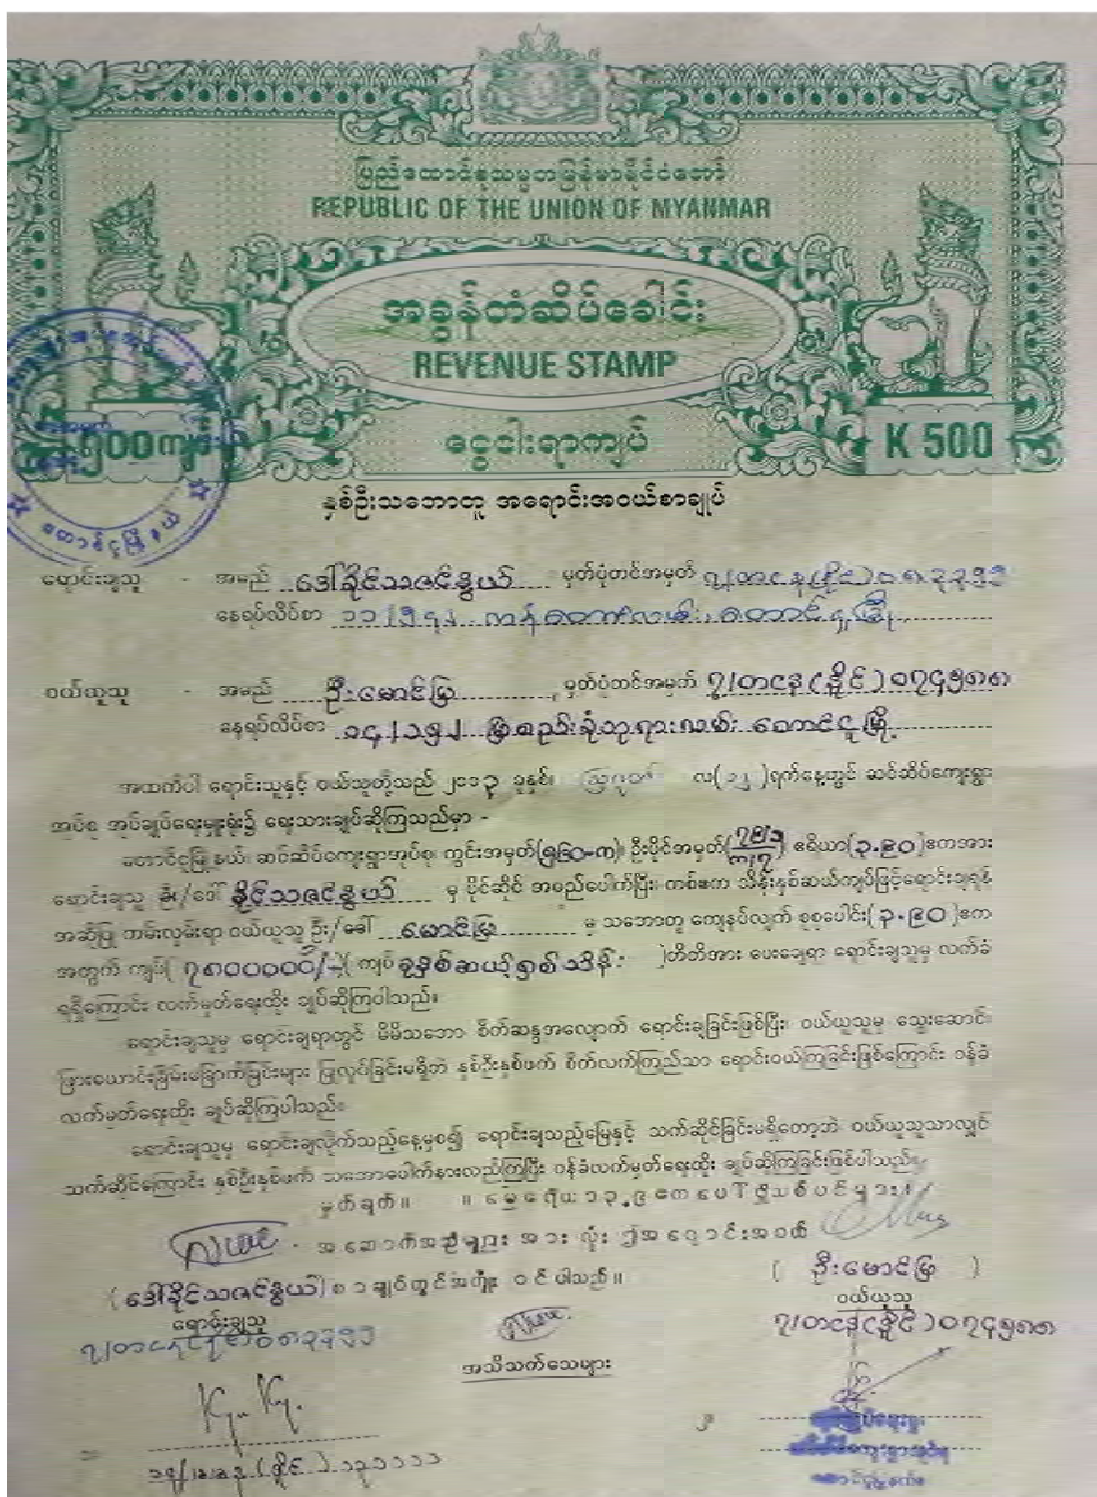 ပြည်ထောင်စုသမ္မတမြန်မာနိုင်ငံတော်
REPUBLIC OF THE UNION OF MYANMAR
အခွန်တံဆိပ်ခေါင်း
REVENUE STAMP
၅၀၀ကျပ် ငွေငါးရာကျပ် K 500
နှစ်ဦးသဘောတူ အရောင်းအဝယ်စာချုပ်
ရောင်းချသူ - အမည် ဒေါ်ခိုင်သဇင်နွယ် မှတ်ပုံတင်အမှတ်
နေရပ်လိပ်စာ တောင်ငူမြို့
ဝယ်ယူသူ - အမည် ဦးမောင်မြ မှတ်ပုံတင်အမှတ် ၇/တငန(နိုင်)၀၇၄၅၈၈
နေရပ်လိပ်စာ မြစည်းခုံဘုရားလမ်း တောင်ငူမြို့
အထက်ပါ ရောင်းသူနှင့် ဝယ်သူတို့သည် ၂၀၁၃ ခုနှစ်၊ ဩဂုတ် လ( )ရက်နေ့တွင် ဆင်ဆိပ်ကျေးရွာ
အုပ်စု အုပ်ချုပ်ရေးမှူးရုံး၌ ရေးသားချုပ်ဆိုကြသည်မှာ -
တောင်ငူမြို့နယ်၊ ဆင်ဆိပ်ကျေးရွာအုပ်စု၊ ကွင်းအမှတ် ဦးပိုင်အမှတ် ဧရိယာ(၃.၉၀)ဧကအား
ရောင်းချသူ ဦး/ဒေါ် ခိုင်သဇင်နွယ် မှ ပိုင်ဆိုင် အမည်ပေါက်ပြီး၊ တစ်ဧက သိန်းနှစ်ဆယ်ကျပ်ဖြင့်ရောင်းချရန်
အဆိုပြု ကမ်းလှမ်းရာ ဝယ်ယူသူ ဦး/ဒေါ် မောင်မြ မှ သဘောတူ ကျေနပ်လျက် စုစုပေါင်း(၃.၉၀)ဧက
အတွက် ကျပ်( ၇၈၀၀၀၀၀/-)( ကျပ် ခုနှစ်ဆယ့်ရှစ်သိန်း )တိတိအား ပေးချေရာ ရောင်းချသူမှ လက်ခံ
ရရှိကြောင်း လက်မှတ်ရေးထိုး ချုပ်ဆိုကြပါသည်။
ရောင်းချသူမှ ရောင်းချရာတွင် မိမိသဘော စိတ်ဆန္ဒအလျောက် ရောင်းချခြင်းဖြစ်ပြီး၊ ဝယ်ယူသူမှ သွေးဆောင်
ဖြားယောင်းခြိမ်းခြောက်ခြင်းများ ပြုလုပ်ခြင်းမရှိဘဲ နှစ်ဦးနှစ်ဖက် စိတ်လက်ကြည်သာ ရောင်းဝယ်ကြခြင်းဖြစ်ကြောင်း ဝန်ခံ
လက်မှတ်ရေးထိုး ချုပ်ဆိုကြပါသည်။
ရောင်းချသူမှ ရောင်းချလိုက်သည့်နေ့မှစ၍ ရောင်းချသည့်မြေနှင့် သက်ဆိုင်ခြင်းမရှိတော့ဘဲ ဝယ်ယူသူသာလျှင်
သက်ဆိုင်ကြောင်း နှစ်ဦးနှစ်ဖက် သဘောပေါက်နားလည်ကြပြီး ဝန်ခံလက်မှတ်ရေးထိုး ချုပ်ဆိုကြခြင်းဖြစ်ပါသည်။
မှတ်ချက်။ ။ မြေဧရိယာ ၃.၉ ဧကပေါ်ရှိသစ်ပင်များ၊
အဆောက်အဦများ အားလုံး ဤအရောင်းအဝယ်
(ဒေါ်ခိုင်သဇင်နွယ်) စာချုပ်တွင်အကျုံးဝင်ပါသည်။ ( ဦးမောင်မြ )
ရောင်းချသူ ဝယ်ယူသူ
၇/တငန(နိုင်)၀၇၄၅၈၈
အသိသက်သေများ